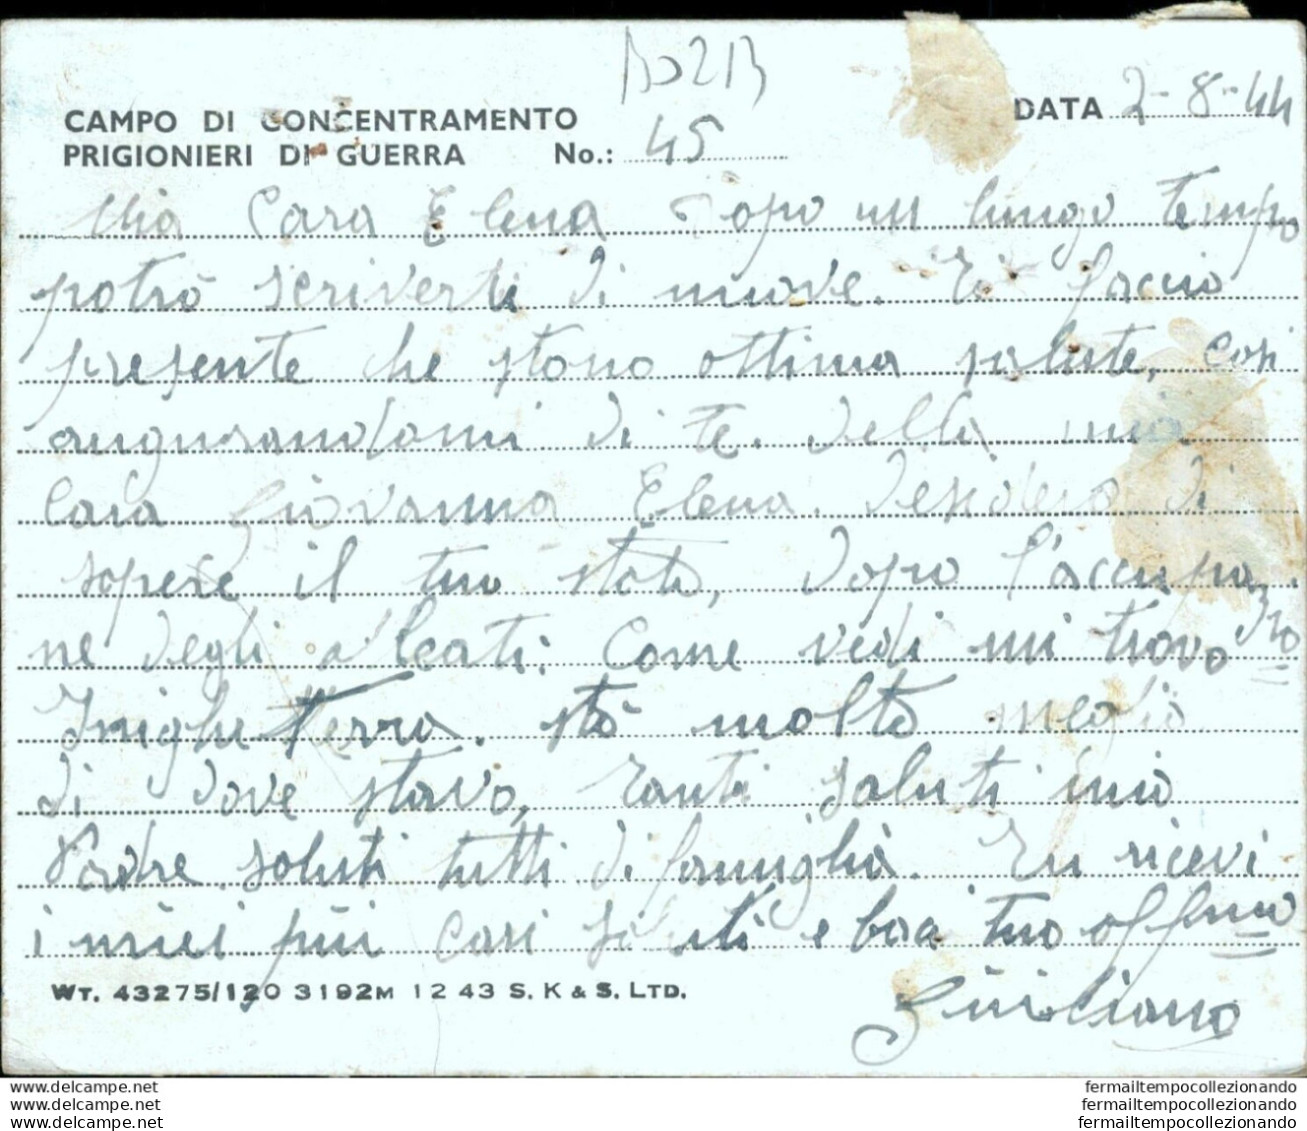 B02B
CAMPO DI CONCENTRAMENTO DATA 2-8-44
PRIGIONIERI DI GUERRA No.: 45
Mia Cara Elena Dopo un lungo tempo
potrò scriverti di nuove. Ti faccio
presente che stono ottima salute, così
augurandomi di te. della mia
Cara Giovanna Elena. desidero di
sapere il tuo stato, dopo l'accupazio
ne degli alleati: Come vedi mi trovo
Inighilterra. stò molto meglio
di dove stavo, Tanti saluti mio
Padre saluti tutti di famiglia. Tu ricevi
i miei più cari saluti e baci tuo affmo
Giuliano
WT. 43275/120 3192M 12 43 S. K & S. LTD.
www.delcampe.net
www.delcampe.net
www.delcampe.net
fermailtempocollezionando
fermailtempocollezionando
fermailtempocollezionando